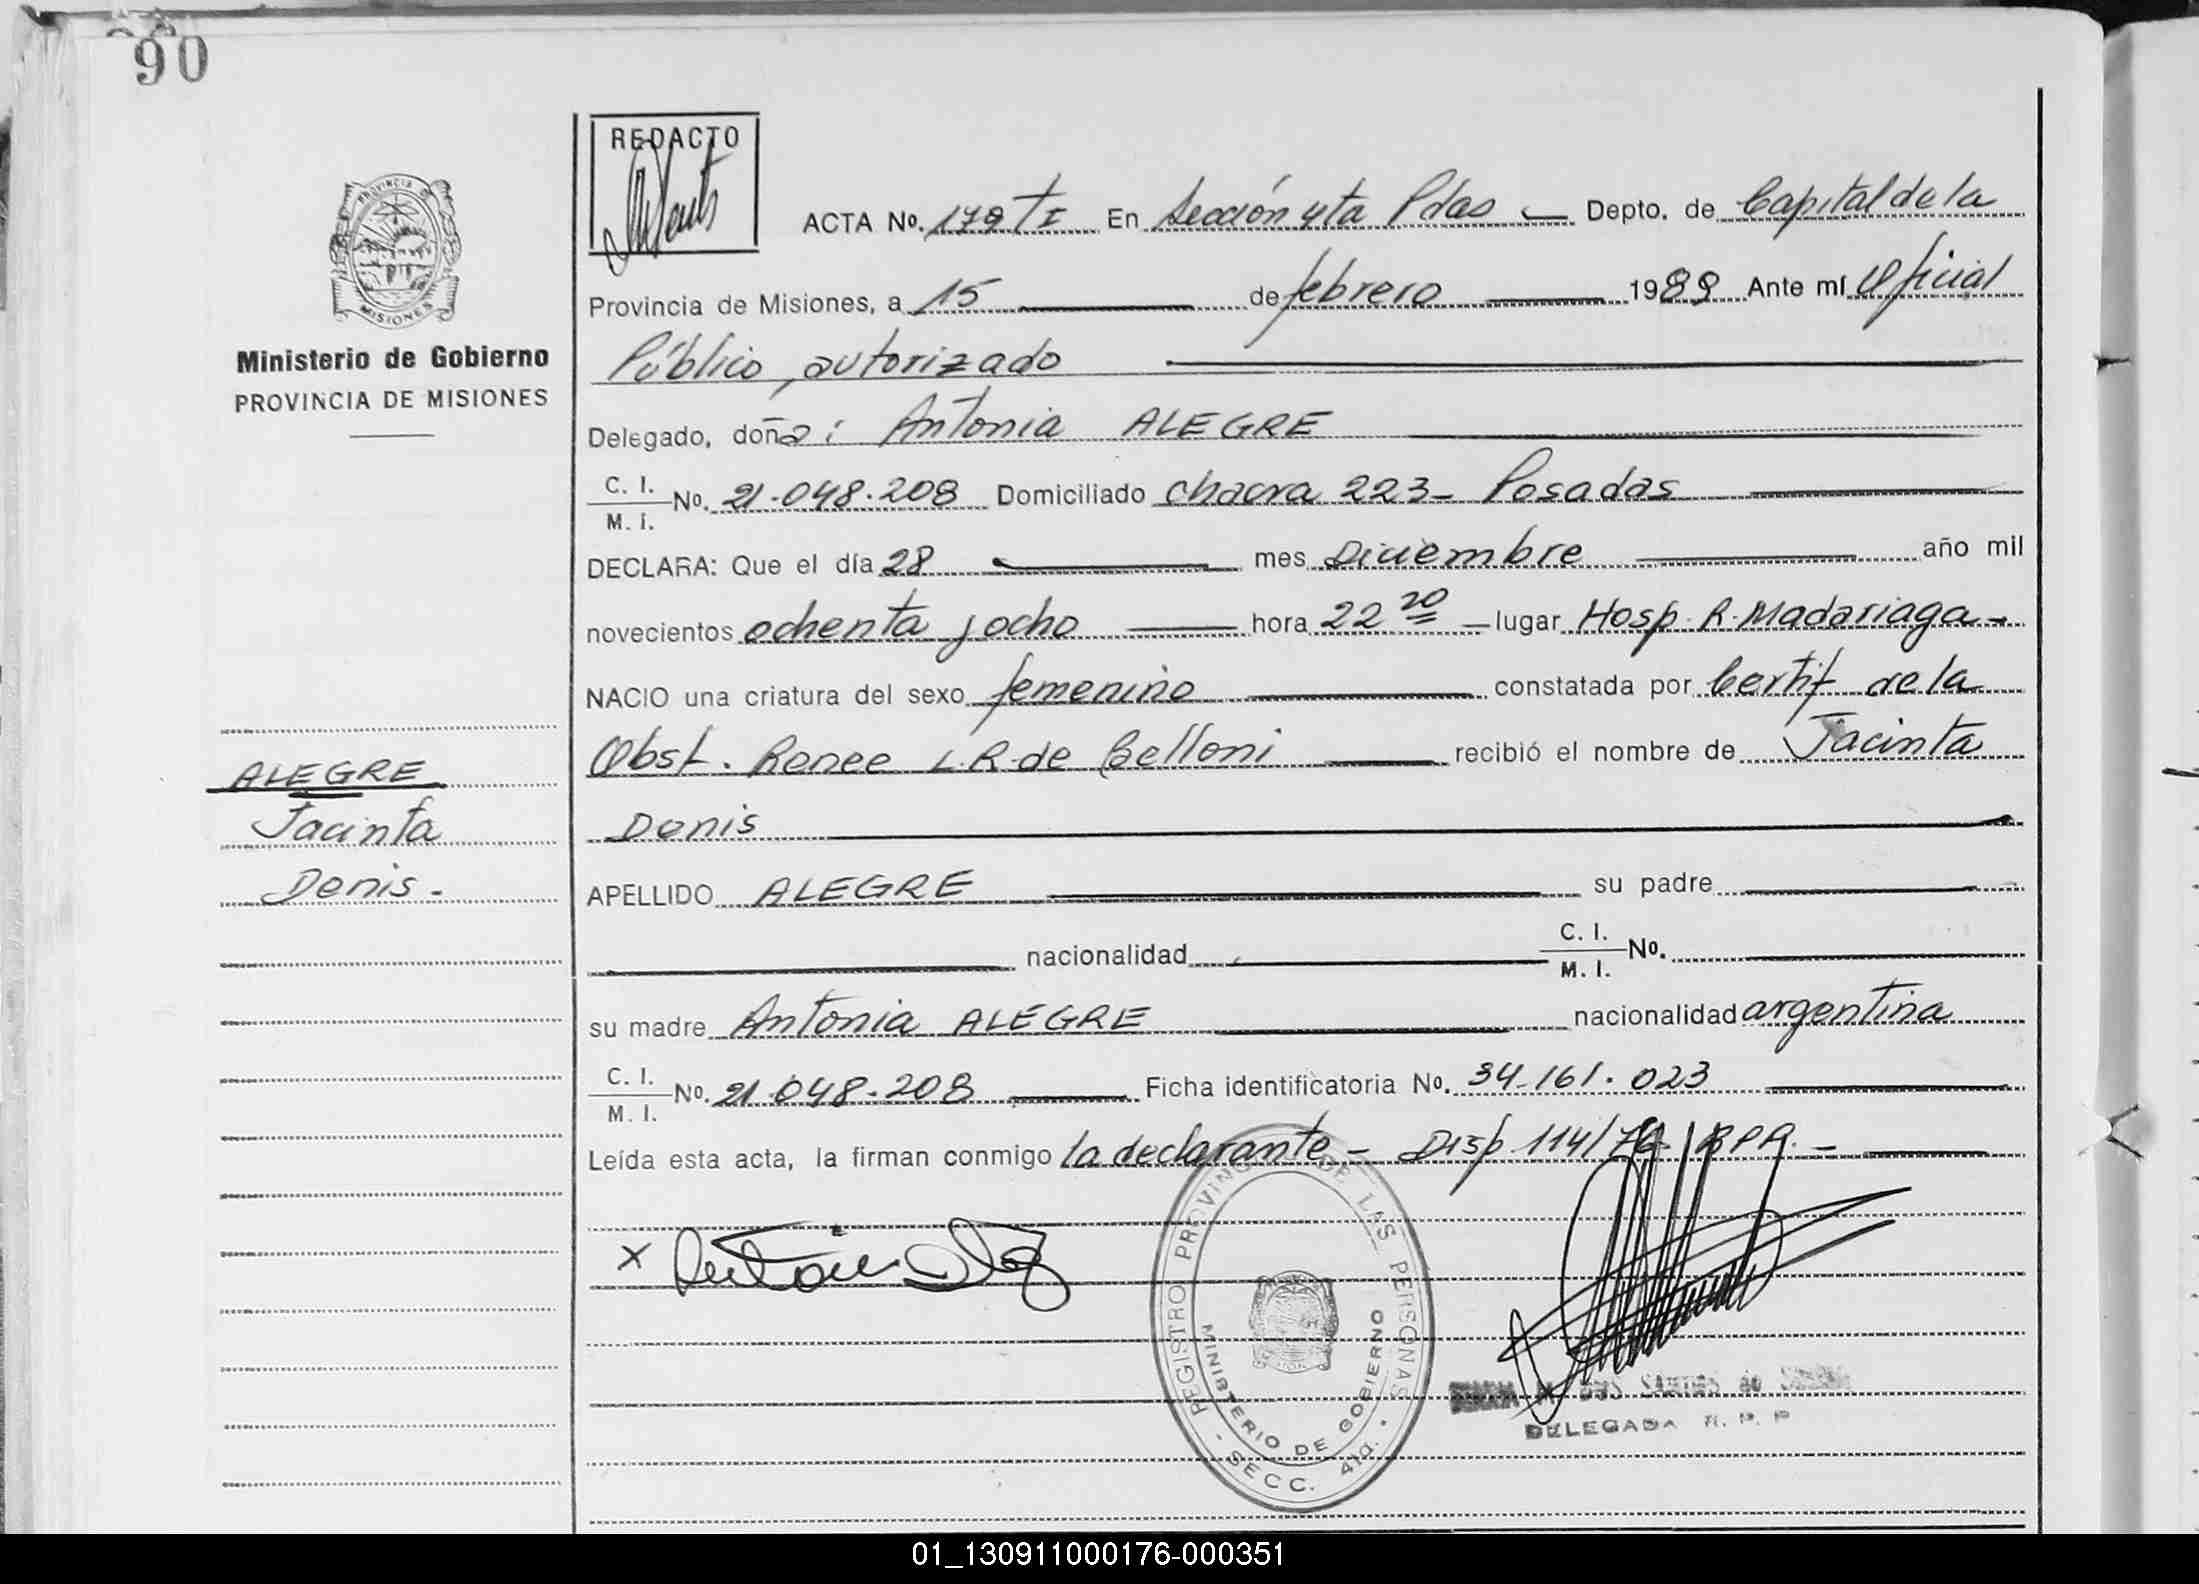 90
REDACTO
ACTA No. 179 T I En Sección 4ta Pdas Depto. de Capital de la
Provincia de Misiones, a 15 de febrero 1989 Ante mí Oficial
Público, autorizado
Ministerio de Gobierno
PROVINCIA DE MISIONES
Delegado, doña: Antonia ALEGRE
C. I.
M. I. No. 21.048.208 Domiciliado chacra 223- Posadas
DECLARA: Que el día 28 mes Diciembre año mil
novecientos ochenta y ocho hora 22 20 lugar Hosp. R. Madariaga-
NACIO una criatura del sexo femenino constatada por Certif de la
Obst. Renee L.R. de Belloni recibió el nombre de Jacinta
Denis
ALEGRE
Jacinta
Denis.
APELLIDO ALEGRE su padre
nacionalidad C. I.
M. I. No.
su madre Antonia ALEGRE nacionalidad argentina
C. I.
M. I. No. 21.048.208 Ficha identificatoria No. 34.161.023
Leída esta acta, la firman conmigo la declarante - Disp. 114/76 RPP. -
x Antonia
REGISTRO PROVINCIAL DE LAS PERSONAS
MINISTERIO DE GOBIERNO
- SECC. 4ta. -
DELEGADA R. P. P
PROVINCIA DE
MISIONES
01_130911000176-000351